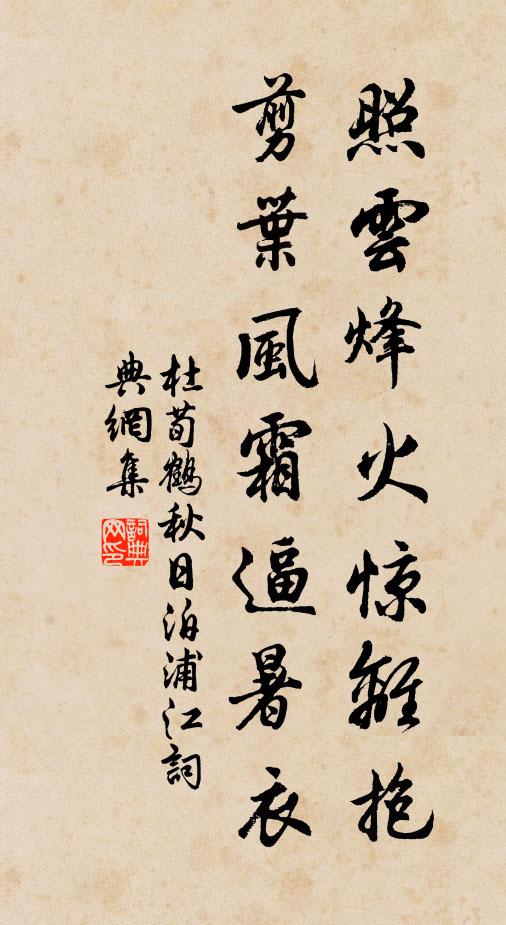 照雲烽火惊離抱
剪葉風霜逼暑衣
杜荀鶴秋日泊浦江詞
典網集
詞典網印